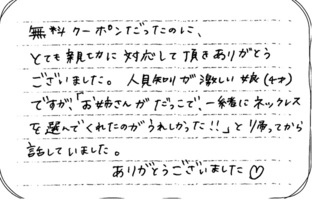 無料クーポンだったのに、
とても親切に対応して頂きありがとう
ございました。人見知りが激しい娘(4才)
ですが、「お姉さんがだっこで、一緒にネックレス
を選んでくれたのがうれしかった!!」と帰ってから
話していました。
ありがとうございました♡